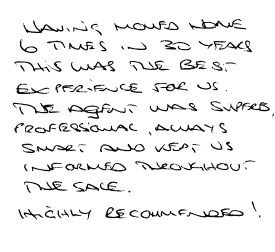 HAVING MOVED HOME
6 TIMES IN 30 YEARS
THIS WAS THE BEST
EXPERIENCE FOR US.
THE AGENT WAS SUPERB,
PROFESSIONAL, ALWAYS
SMART AND KEPT US
INFORMED THROUGHOUT
THE SALE.
HIGHLY RECOMMENDED!